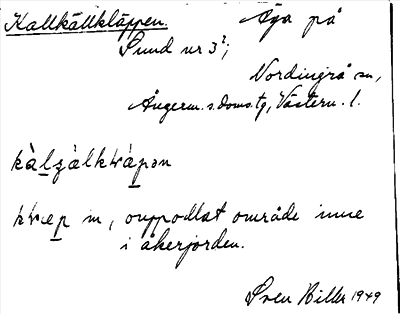 Kallkällkläppen. Äga på
Sund nr 3²;
Nordingrå sn,
Ångerm. s. doms.tg, Västern. l.
kàlʒàlkɫápən
kɫæp m, ouppodlat område inne
i åkerjorden.
Sven Hiller 1949